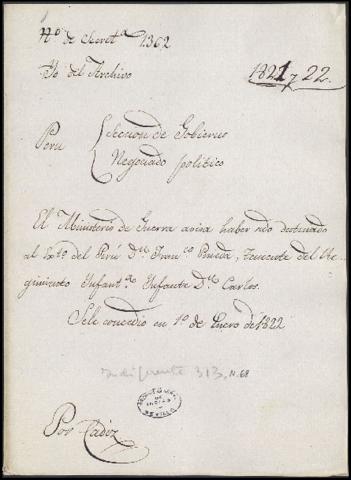 Nº de Secretª 1362
Yd del Archivo
1821 y 22.
Perú
Seccion de Gobierno
Negociado politico
El Ministerio de Guerra avisa haber sido destinado
al Extº del Perú Dⁿ Franᶜᵒ Pineda, Teniente del Re-
gimiento Infantª Infante Dⁿ Carlos.
Se le concedio en 1º de Enero de 1822
Indiferente 313, N.68
ARCHIVO GENERAL
DE
INDIAS
SEVILLA
Por Cadiz